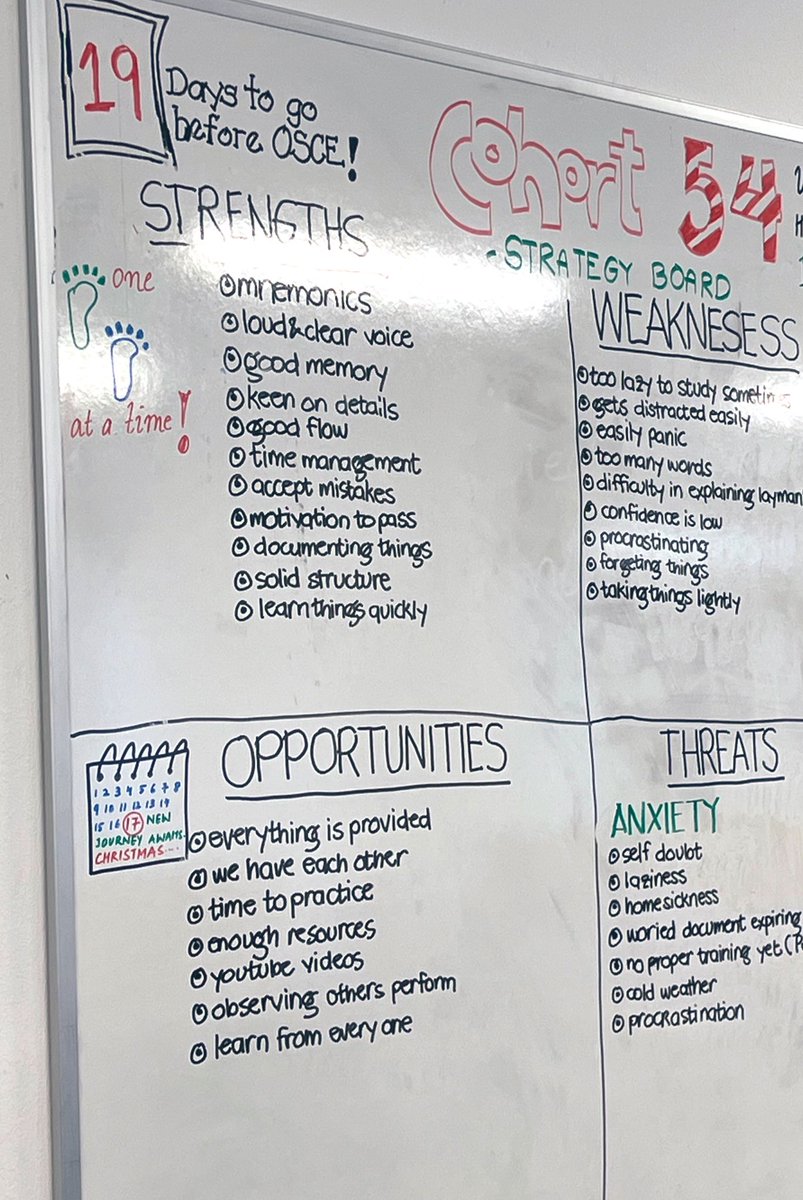 19
Days to go
before OSCE!
Cohort 54
- STRATEGY BOARD
STRENGTHS
one
at a time!
mnemonics
loud & clear voice
good memory
keen on details
good flow
time management
accept mistakes
motivation to pass
documenting things
solid structure
learn things quickly
WEAKNESESS
too lazy to study
gets distracted easily
easily panic
too many words
difficulty in explaining layman
confidence is low
procrastinating
forgeting things
taking things lightly
OPPORTUNITIES
1 2 3 4 5 6 7 8
9 10 11 12 13 14
15 16 17 NEW
JOURNEY AWAITS
CHRISTMAS....
everything is provided
we have each other
time to practice
enough resources
youtube videos
observing others perform
learn from every one
THREATS
ANXIETY
self doubt
laziness
homesickness
woried document expiring
no proper training yet
cold weather
procrastination